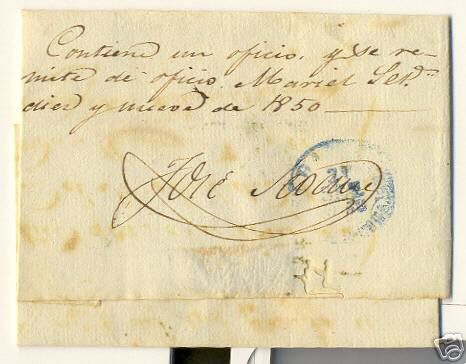 Contiene un oficio. y se re-
mite de oficio. Mariel Set.
diez y nueve de 1850
José